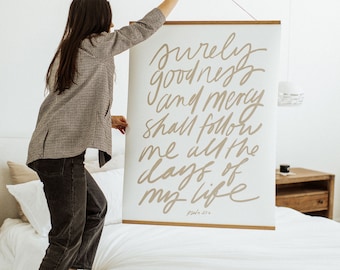 surely
goodness
and mercy
shall follow
me all the
days of
my life